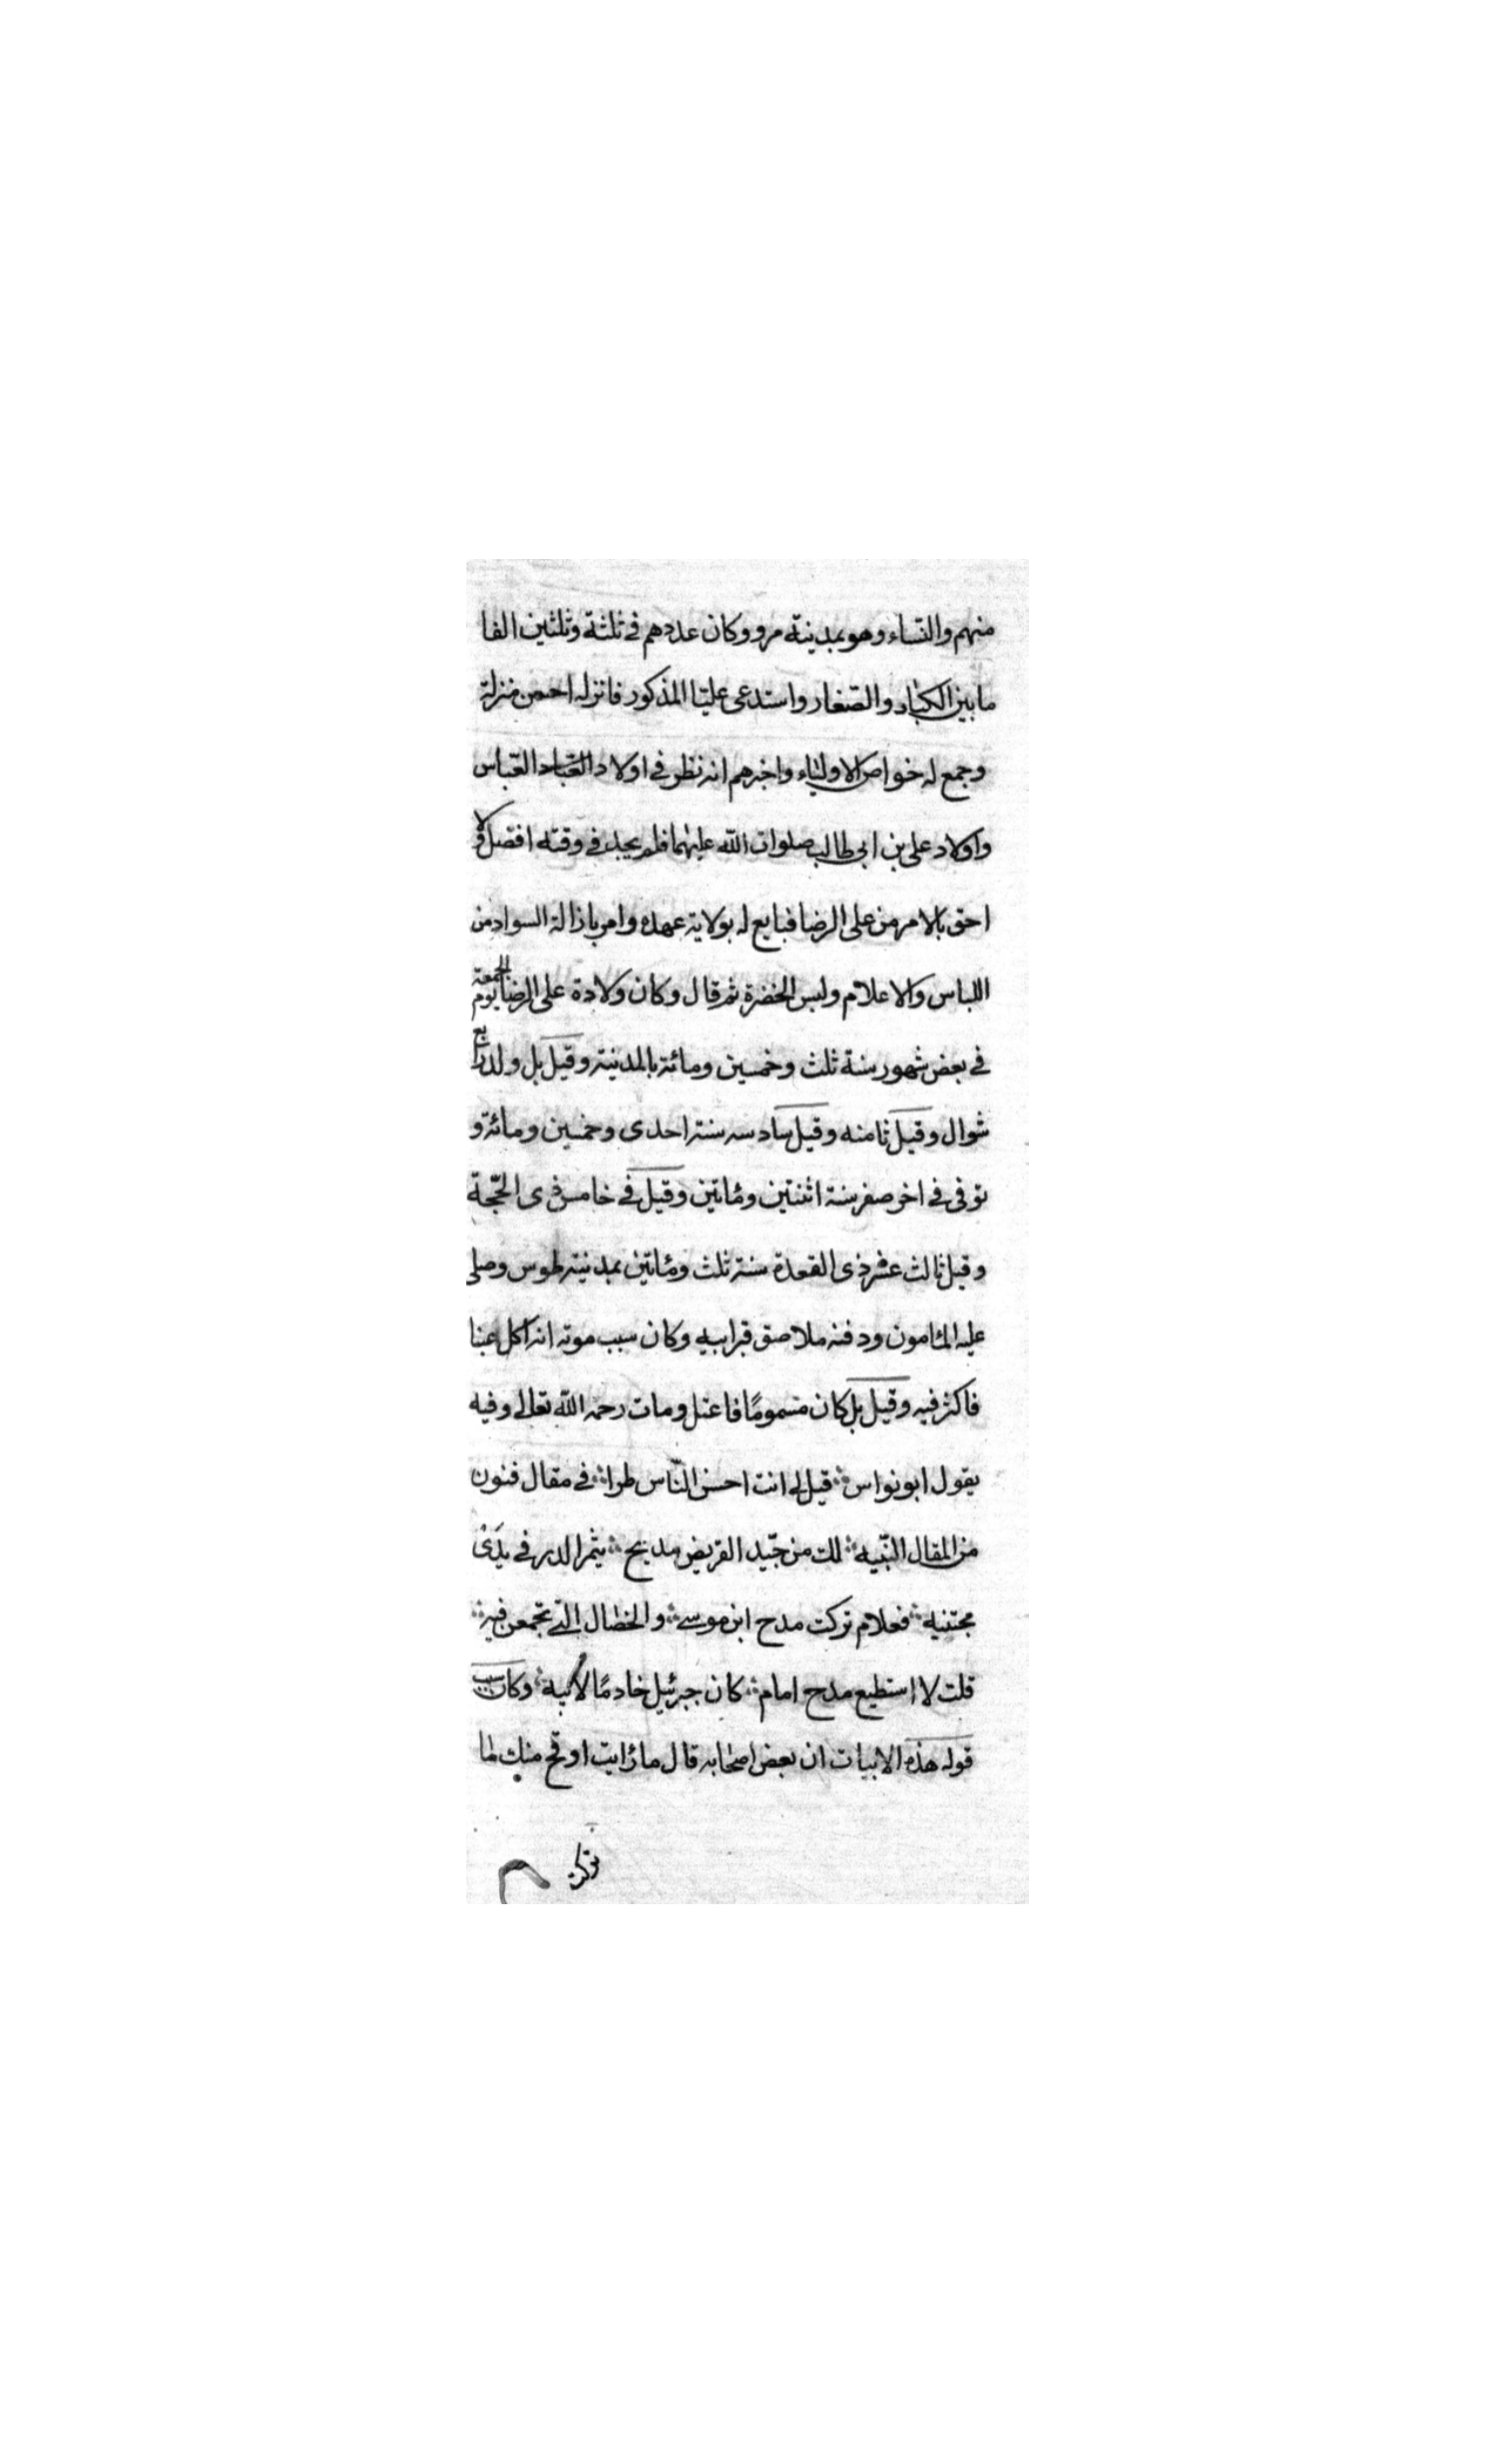 منهم والنساء وهو بمدينة مرو وكان عددهم في ثلثة وثلثين الفا
ما بين الكبار والصغار واستدعى عليّا المذكور فانزله احسن منزلة
وجمع له خواص الاولياء واخبرهم انه نظر في اولاد العباد العبّاس
واولاد على بن ابى طالب صلوات الله عليهما فلم يجد في وقته افضل ولا
احق بالامر من على الرضا فبايع له بولاية عهده وامر بازالة السواد من
اللباس والاعلام ولبس الخضرة ثم قال وكان ولادة على الرضا يوم الجمعة
في بعض شهور سنة ثلث وخمسين ومائة بالمدينة وقيل بل ولد رابع
شوال وقيل ثامنه وقيل سادسه سنة احدى وخمسين ومائة و
توفى في اخر صفر سنة اثنتين ومأتين وقيل في خامس ذى الحجّة
وقيل ثالث عشر ذى القعدة سنة ثلث ومأتين بمدينة طوس وصلى
عليه المأمون ودفنه ملاصق قبر ابيه وكان سبب موته انه اكل عنبا
فاكثر فيه وقيل بل كان مسمومًا فاعتل ومات رحمه الله تعالى وفيه
يقول ابو نواس قيل لى انت احسن النّاس طرا في مقال فنون
من المقال النّبيه لك من جيّد القريض مديح يثمر الدر في يَدَىْ
مجتنيه فعلام تركت مدح ابن موسى والخصال التى تجمعن فيه
قلت لا استطيع مدح امام كان جبرئيل خادمًا لابيه وكان سبب
قوله هذه الابيات ان بعض اصحابه قال ما رايت اوقح منك لما
تركت